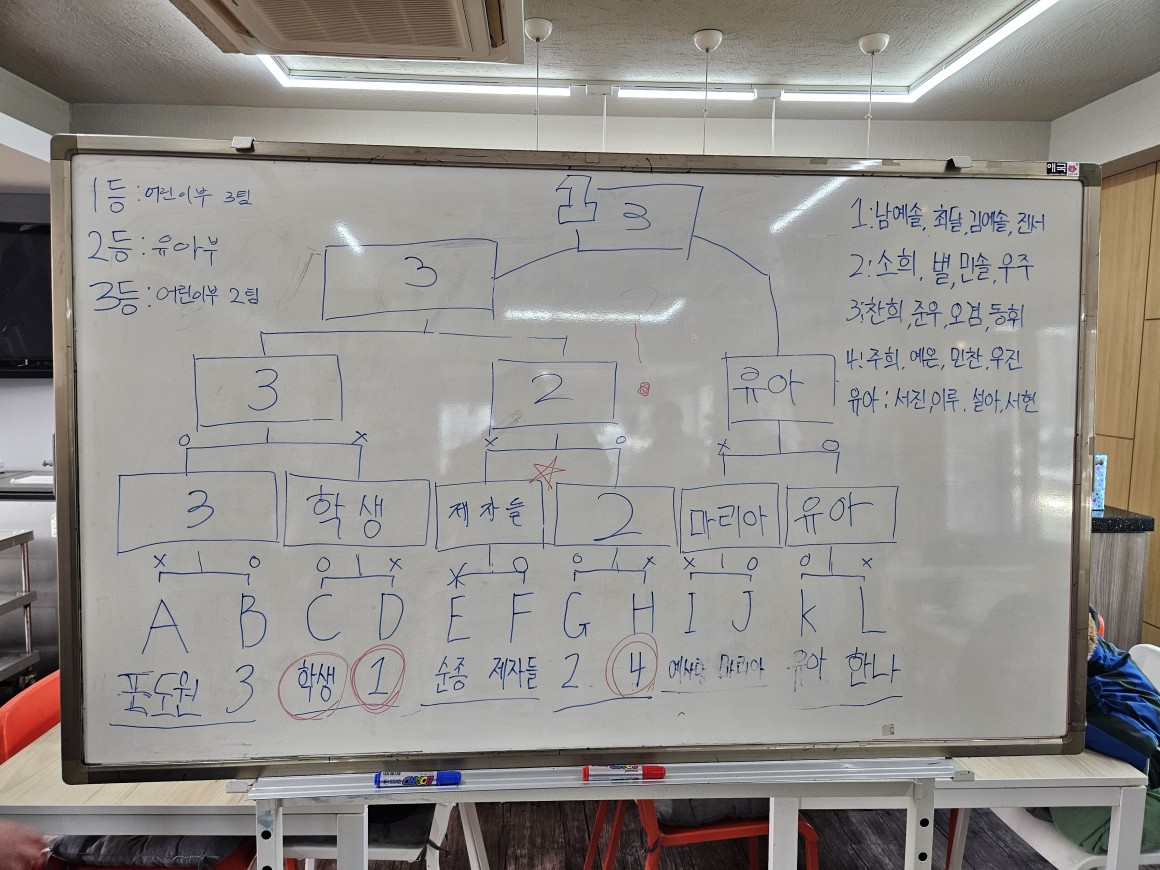 1등 : 어린이부 3팀
2등 : 유아부
3등 : 어린이부 2팀
애국
3
1 : 남예솔, 최달, 김예솔, 진서
2 : 소희, 별, 민솔, 우주
3 : 찬희, 준우, 오겸, 동휘
4 : 주희, 예온, 민찬, 우진
유아 : 서진, 이루, 설아, 서현
3
3 2 유아
o x x o x o
3 학생 제자들 2 마리아 유아
x o o x x o o x x o o x
A B C D E F G H I J K L
포도원 3 학생 1 순종 제자들 2 4 마리아 유아 한나